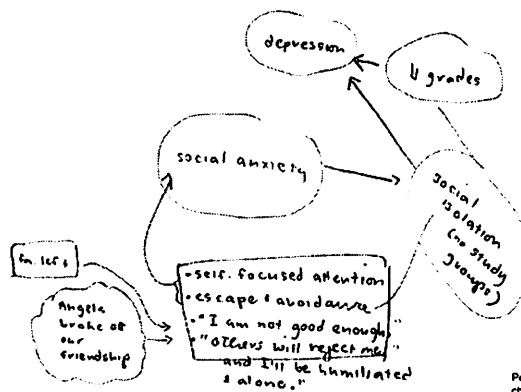 depression
↓↓ grades
social anxiety
social
isolation
(no study
groups)
left
Angela
broke off
our
friendship
• self-focused attention
• escape & avoidance
• "I am not good enough"
• "others will reject me
and I'll be humiliated
& alone."